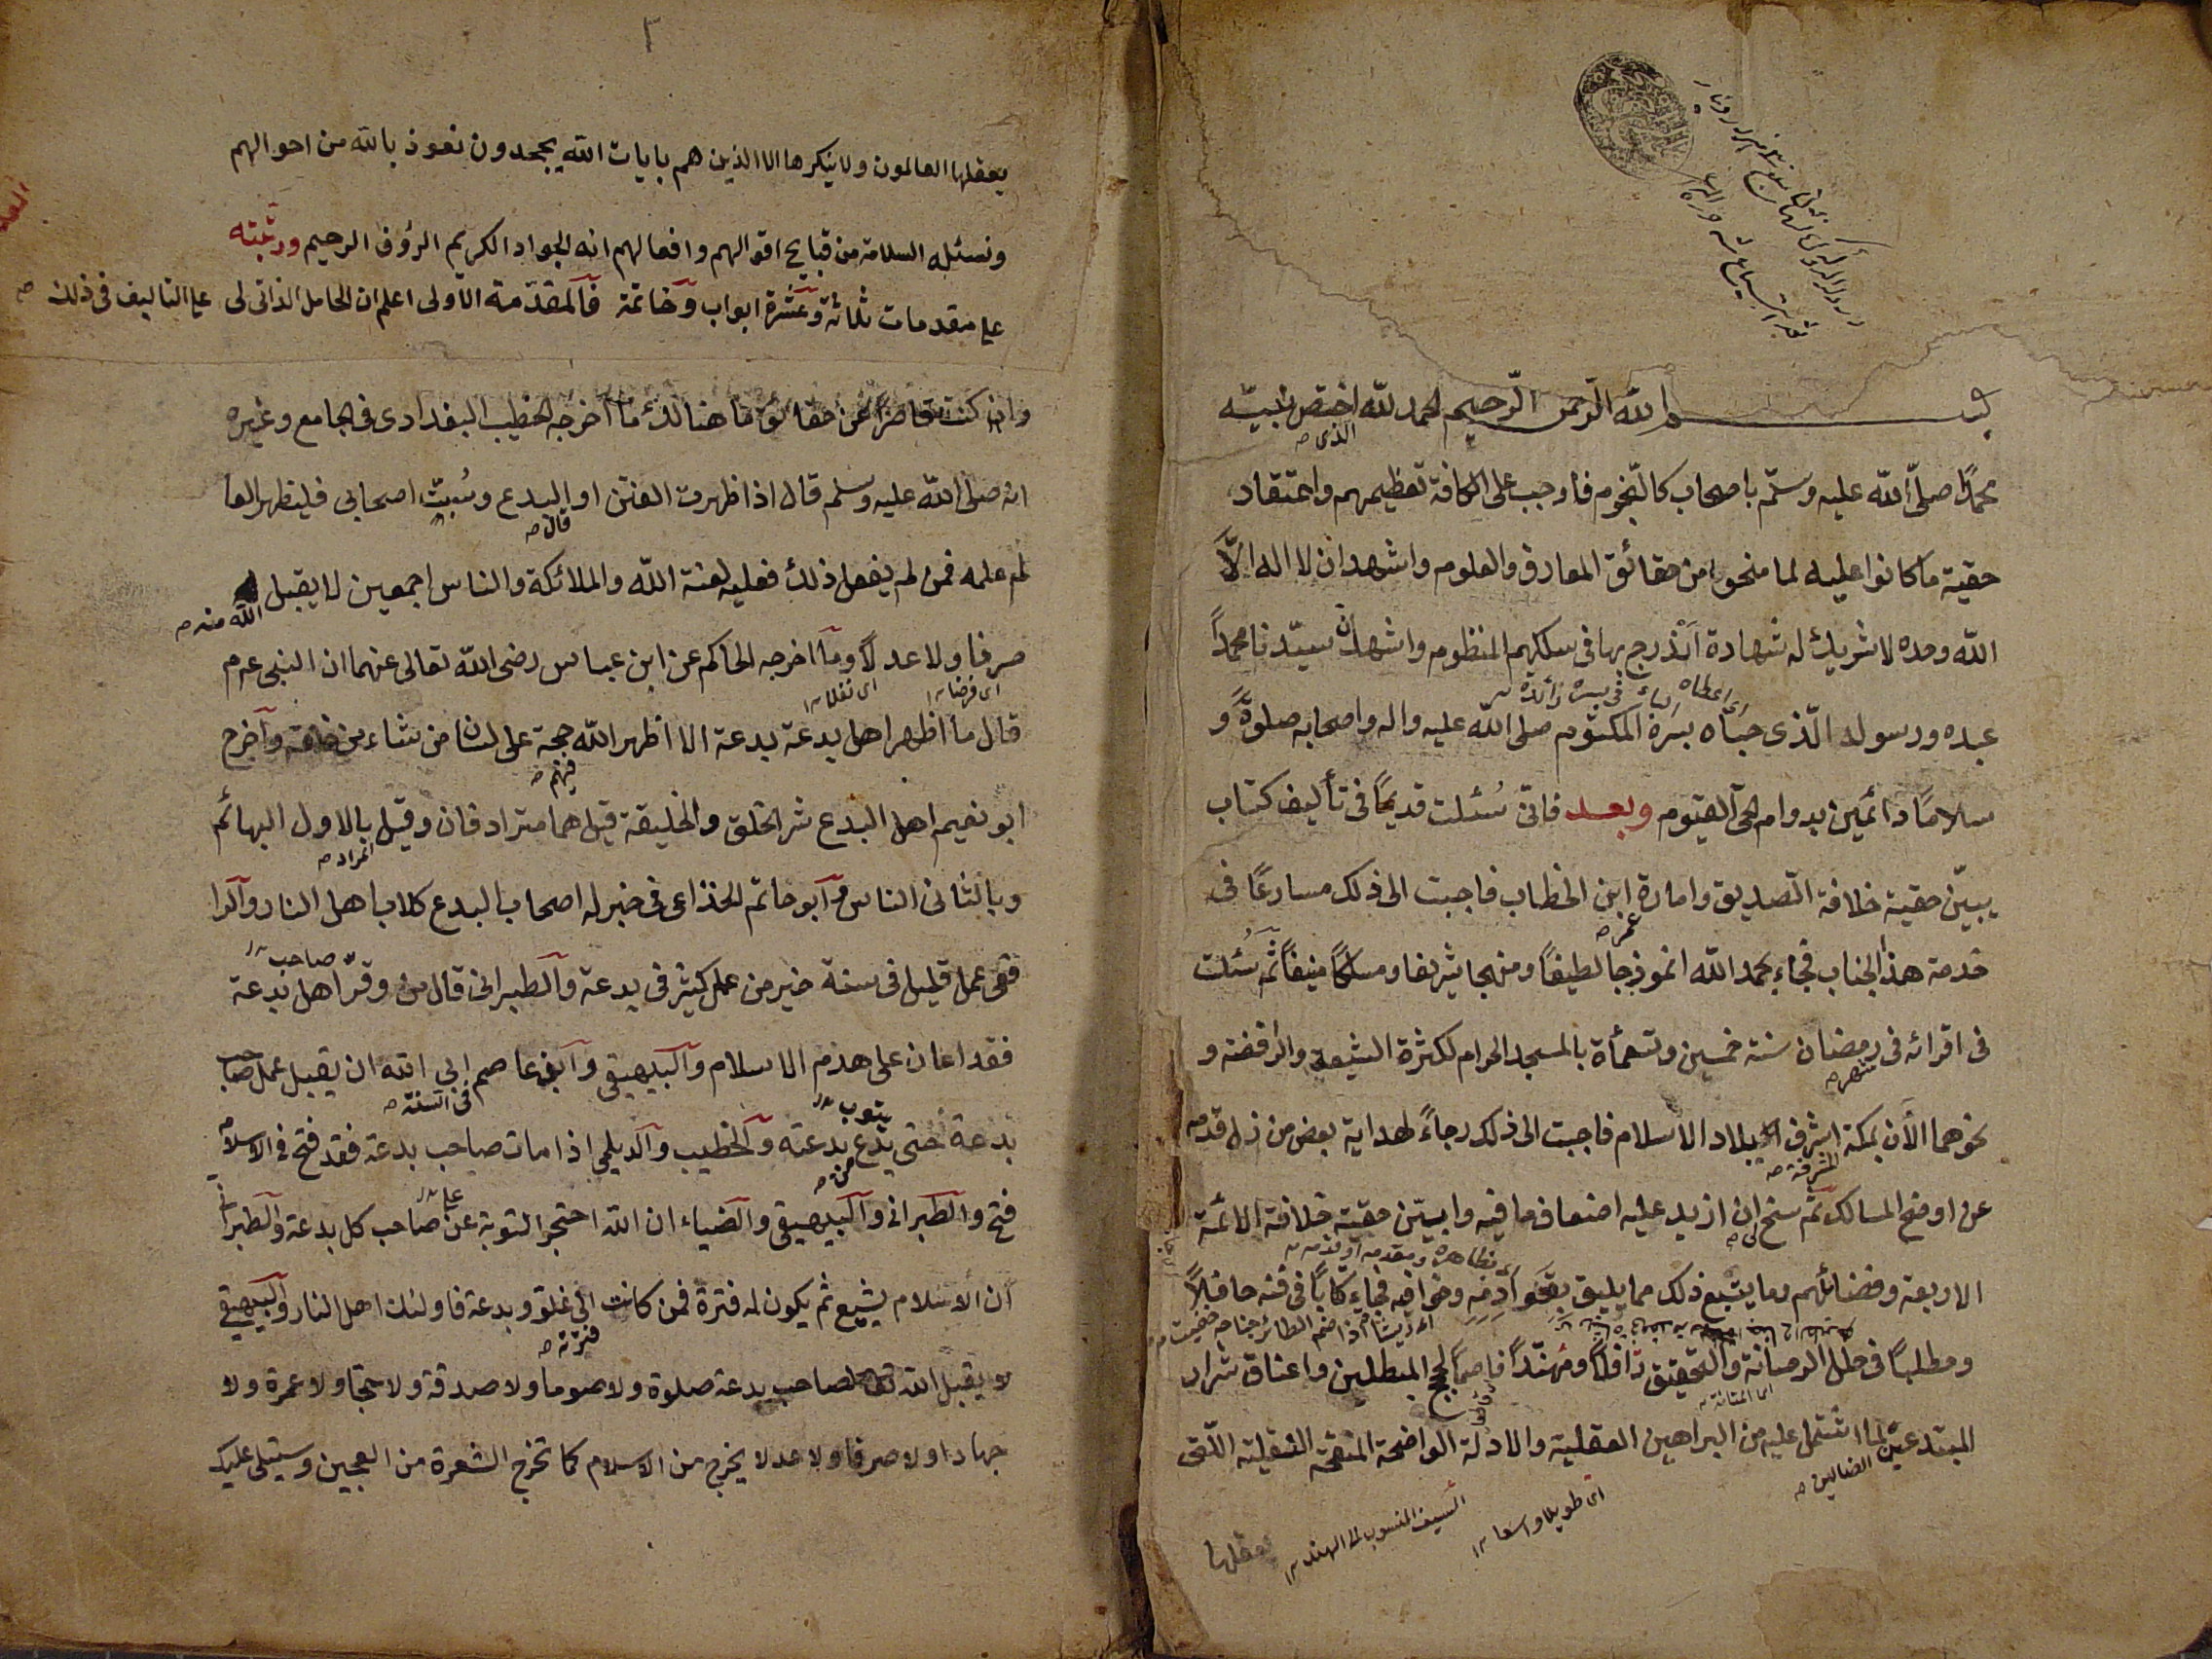 بسم الله الرّحمن الرّحيم الحمد لله اختص نبيّه
الذى صح
محمدًا صلّى الله عليه وسلّم باصحاب كالنّجوم فاوجب على الكافة تعظيمهم واعتقاد
حقية ما كانوا عليه لما منحوا من حقائق المعارف والعلوم واشهد ان لا اله الاّ
الله وحده لا شريك له شهادة اَنْدرج بها فى سلكهم المنظوم واشهد ان سيّدنا محمداً
اى اعطاه الباء فى بسره زائدة
عبده ورسوله الّذى حباه بسره المكتوم صلى الله عليه واله واصحابه صلوةً و
سلامًا دائمين بدوام الحى القيوم وبعد فانّى سُئلت قديمًا فى تأليف كتاب
يبيّن حقية خلافة الصديق وامارة ابن الخطاب فاجبت الى ذلك مسارعًا فى
عمر صح
خدمة هذا الجناب فجاء بحمد الله انموذجا لطيفًا ومنهجا شريفا ومسلكًا منيفًا ثم سُئلت
فى اقرائه فى رمضان سنة خمسين وتسعمأة بالمسجد الحرام لكثرة الشيعة والرافضة و
شهر صح
نحوهما الآن بمكة اشرف بلاد الاسلام فاجبت الى ذلك رجاءً لهداية بعض من زل قدمه
المشرفة صح
عن اوضح المسالك ثم سنح ان ازيد عليه اضعاف ما فيه وابيّن حقية خلافة الائمة
لى صح
الاربعة وفضائلهم وما يتبع ذلك مما يليق بقوادمه وخوافيه فجاء كتابًا فى فنه حافلاً
ومطلبًا فى حلل الرصانة والتحقيق رافلاً ومهنّداً قاصمًا لحجج المبطلين واعناق شرار
اى المتانة
المبتدعين لما اشتمل عليه من البراهين العقلية والادلة الواضحة المنقحة النقلية اللّتى
الضالين صح
اى طويلا واسعا
السيف المنسوب الى الهند
يعقلها
٣
يعقلها العالمون ولا ينكرها الا الذين هم بايات الله يجحدون نعوذ بالله من احوالهم
ونسئله السلامة من قبايح اقوالهم وافعالهم انه الجواد الكريم الرؤف الرحيم ورتّبته
على مقدمات ثلاثة وعشرة ابواب وخاتمة فالمقدّمة الاولى اعلم ان الحامل الذاتى لى على التاليف فى ذلك صح
وان كنت قاصرًا عن حقائق ما هنالك ما اخرجه الخطيب البغدادى فى الجامع وغيره
انه صلى الله عليه وسلم قال اذا ظهرت الفتن او البدع وسُبت اصحابى فليظهر العا
قال صح
لم علمه فمن لم يفعل ذلك فعليه لعنة الله والملائكة والناس اجمعين لا يقبل
الله منه صح
صرفا ولا عدلاً وما اخرجه الحاكم عن ابن عباس رضى الله تعالى عنهما ان النبى عم
اى فرضا
اى نفلا
قال ما اظهر اهل بدعة بدعة الا اظهر الله حجة على لسان من شاء من خلقه واخرج
فيهم صح
ابو نعيم اهل البدع شر الخلق والخليقة قيل هما مترادفان وقيل بالاول البهائم
المراد صح
وبالثانى الناس وابو حاتم الخذاعى فى خبر له اصحاب البدع كلاب اهل النار والرا
فعى عمل قليل فى سنة خير من عمل كثير فى بدعة والطبرانى قال من وقّر اهل بدعة
صاحب
فقد اعان على هدم الاسلام والبيهقى وابن عاصم ابى الله ان يقبل عمل صاحب
فى السنة صح
يتوب
بدعة حتى يدع بدعته والخطيب والديلمى اذا مات صاحب بدعة فقد فتح فى الاسلام
من صح
فتح والطبرانى والبيهقى والضياء ان الله احتجر التوبة عن صاحب كل بدعة والطبرانى
على
ان الاسلام يشيع ثم يكون له فترة فمن كانت الى غلو وبدعة فاولئك اهل النار والبيهقى
فترته صح
لا يقبل الله لصاحب بدعة صلوة ولا صوما ولا صدقة ولا حجا ولا عمرة ولا
جهادا ولا صرفا ولا عدلا يخرج من الاسلام كما تخرج الشعرة من العجين وسيتلى عليك